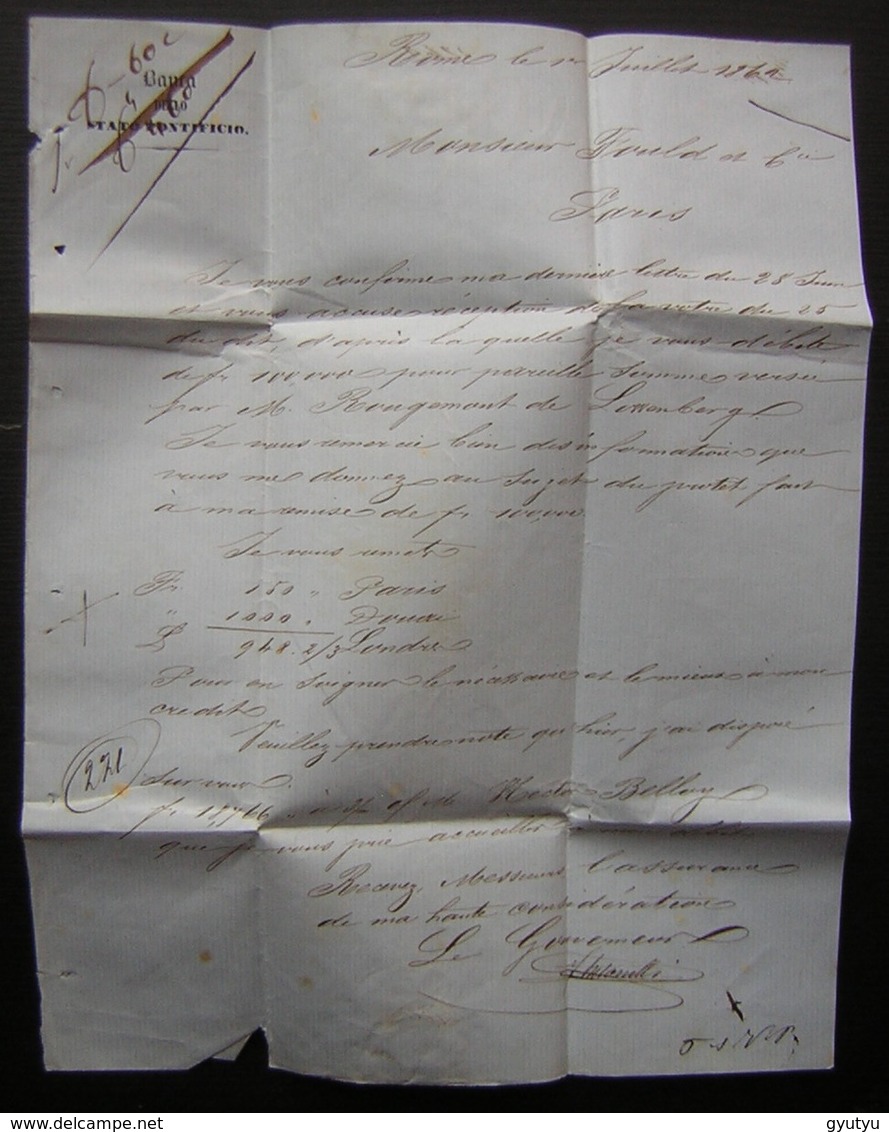 Banca
dello
STATO PONTIFICIO.
Rome le 1er Juillet 186
Monsieur Fould et Cie
Paris
Je vous confirme ma dernière lettre du 28 Juin
et vous accuse réception de la votre du 25
du dit, d'après la quelle je vous débite
de fr 100,000 pour pareille Somme versée
par M. Rougemont de Lowenberg.
Je vous remercie bien des informations que
vous me donnez au Sujet du protêt fait
à ma remise de fr 100,000.
Je vous remets
Fr. 150 " Paris
" 1000 " Douai
L 948. 2/3 Londres
Pour en soigner le nécessaire et le mieux à mon
credit.
Veuillez prendre note qu'hier, j'ai disposé
Sur vous.
fr 18,766 " à M Hector Belloy
que je vous prie accueillir à mon débit.
Recevez, Messieurs l'assurance
de ma haute considération
Le Gouverneur
221
delcampe.net
gyutyu